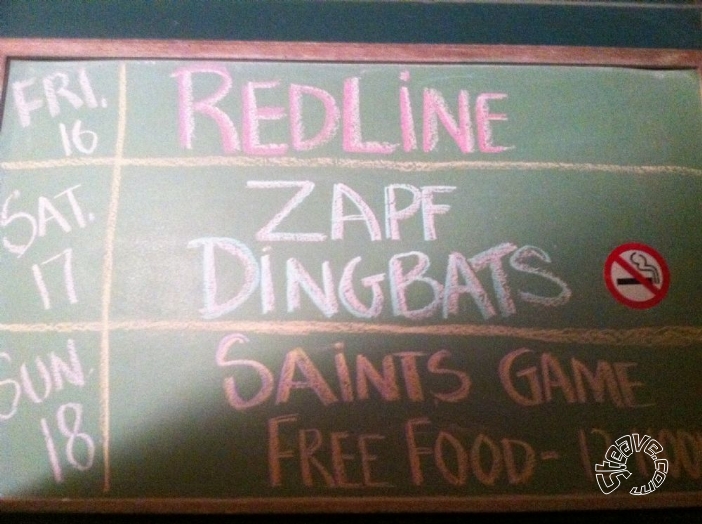 FRI. 16
REDLINE
SAT. 17
ZAPF
DINGBATS
SUN. 18
SAINTS GAME
FREE FOOD-
Steave.com